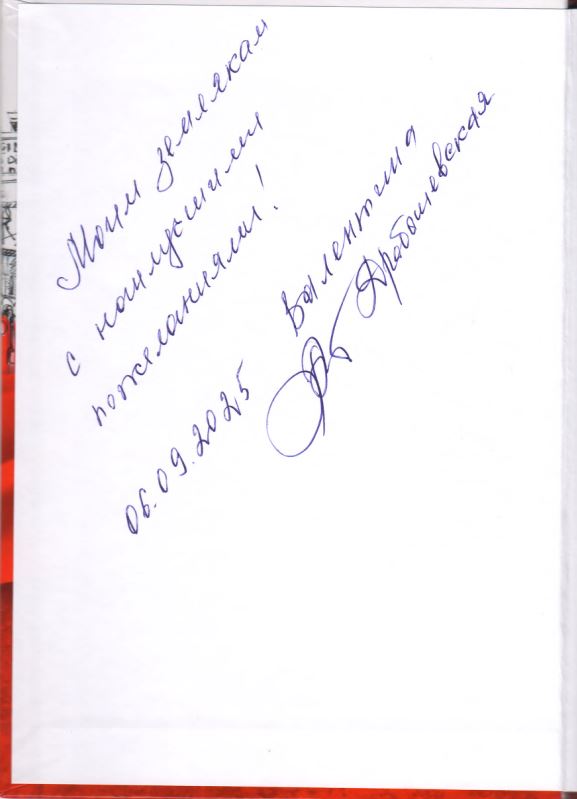 Моим землякам
с наилучшими
пожеланиями!
Валентина
Драбышевская
06.09.2025